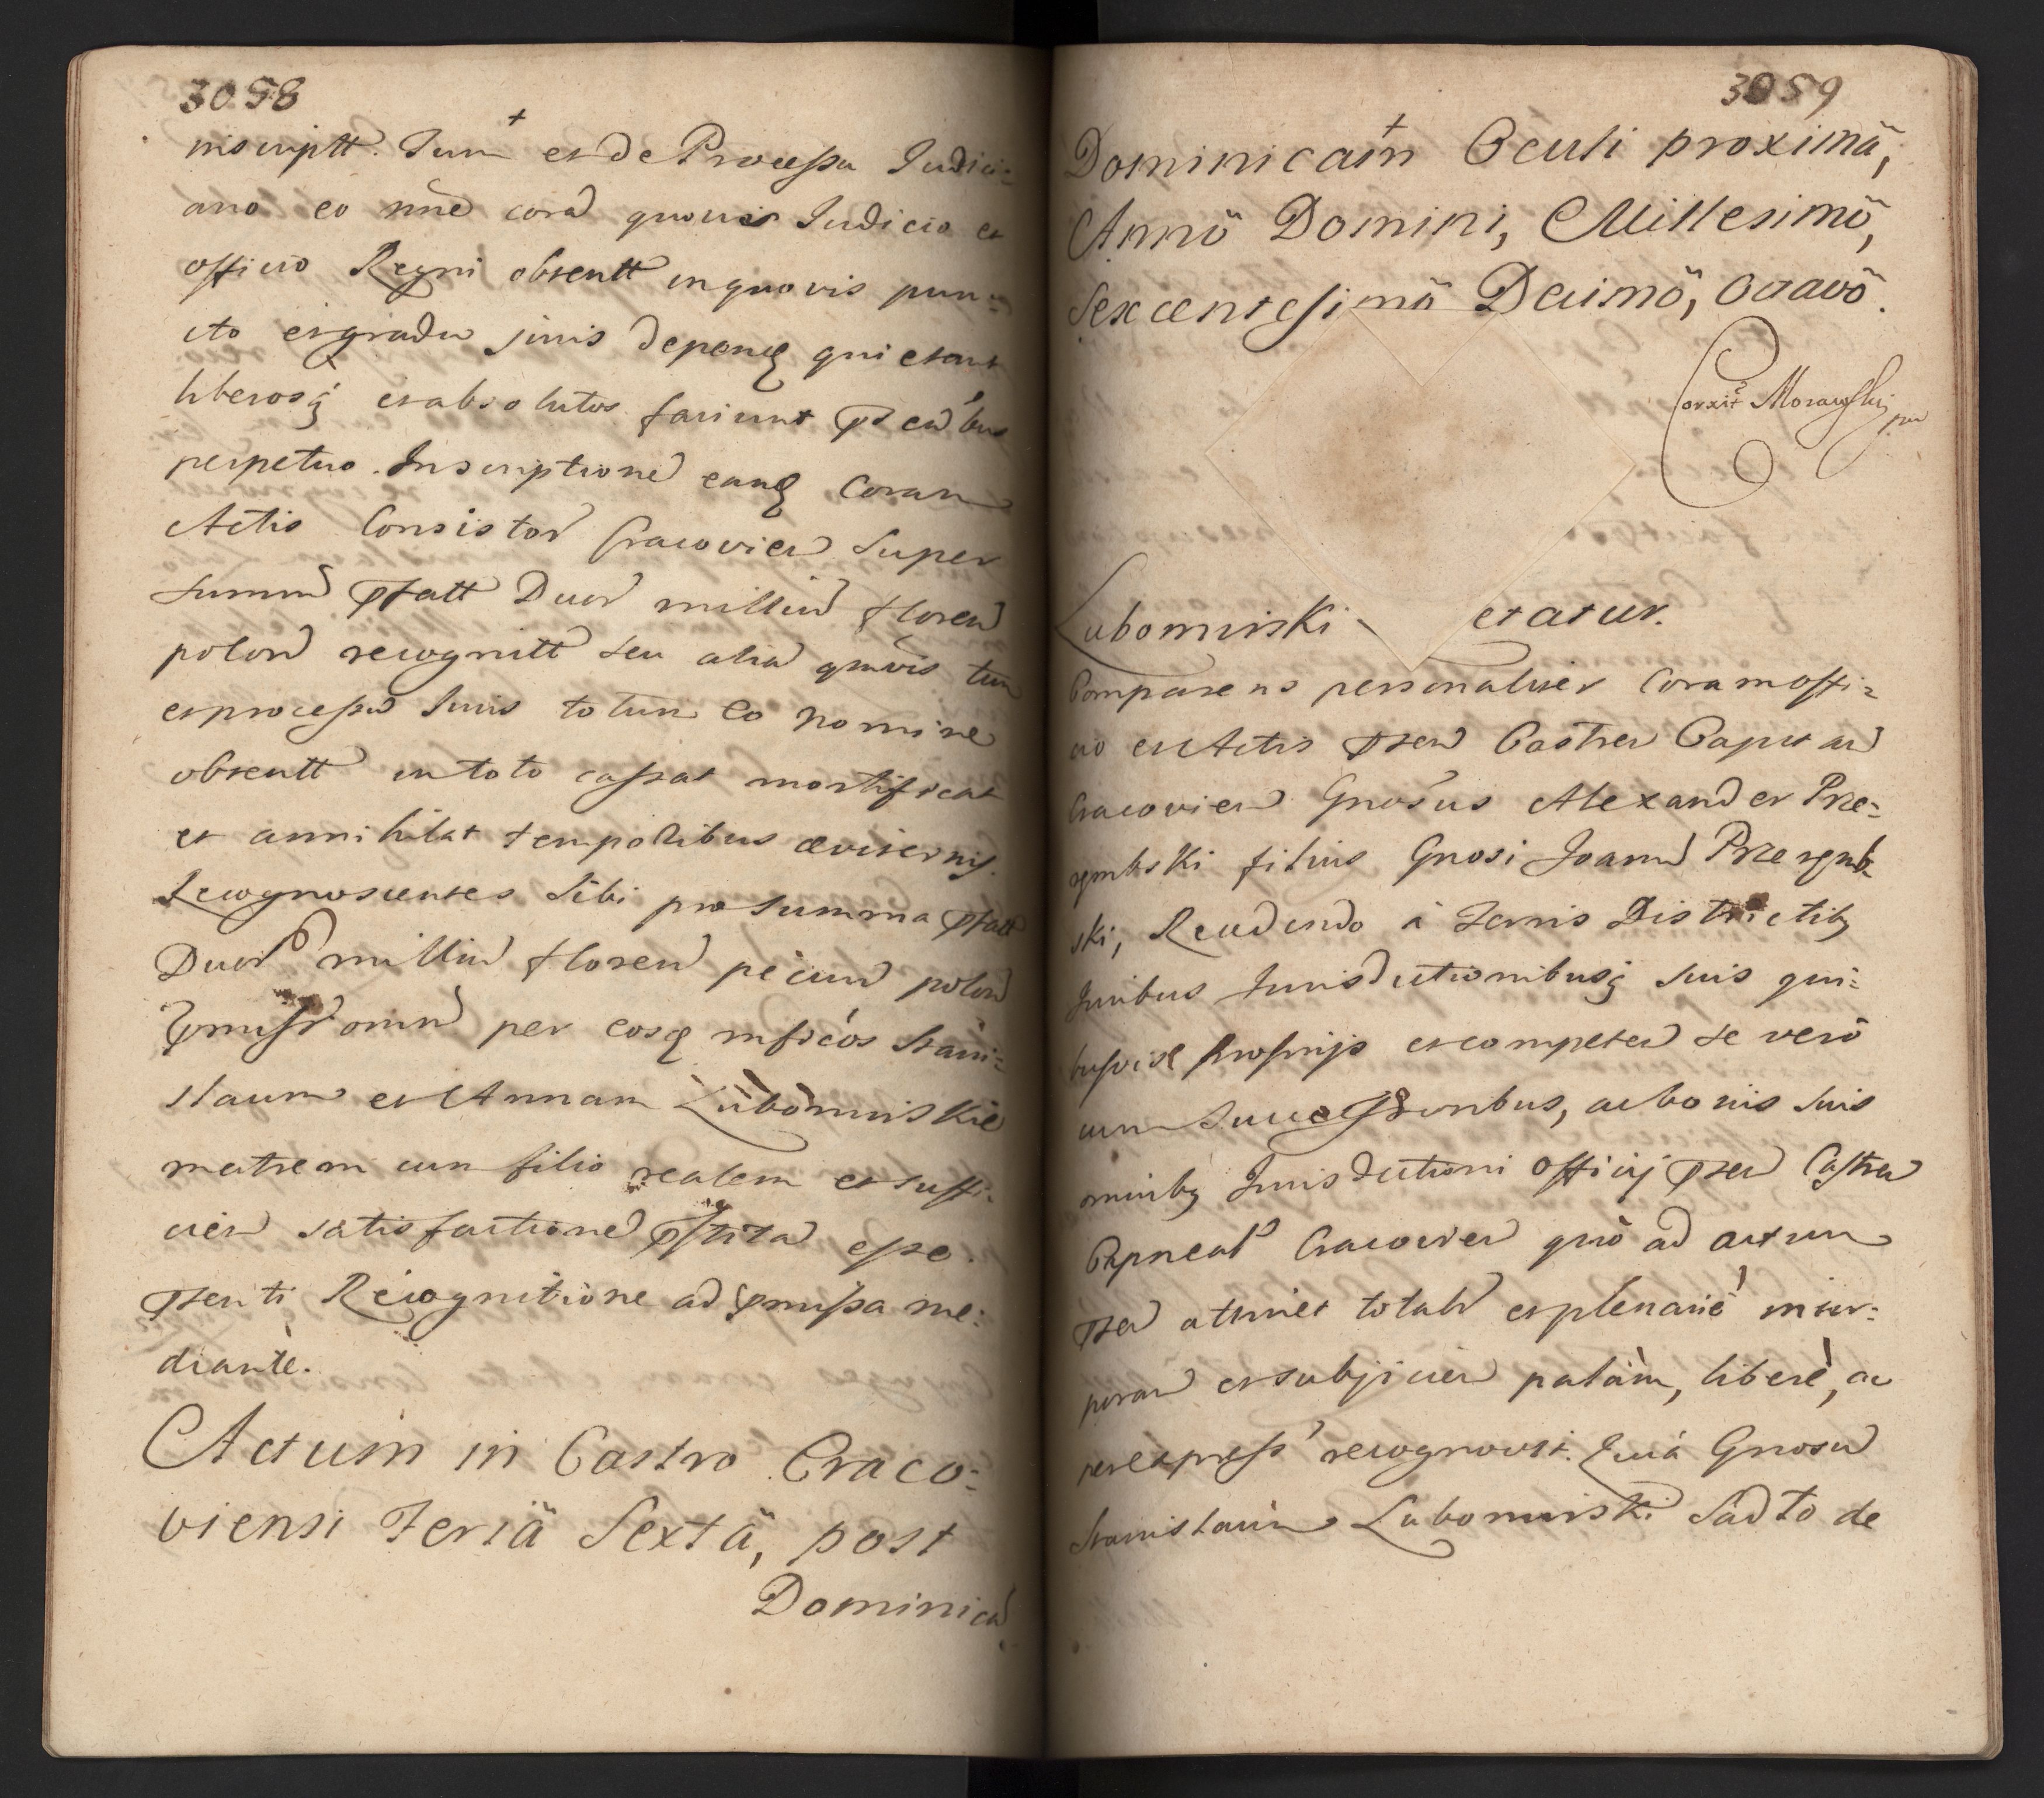 3058
+
inscriptt. Tum et de Processu Judici=
ario eo nne corā quovis Judicio et
officio Regni obtentt in quovis pun=
cto et gradu juris depenā quietant
liberosq et absolutos faciunt
perpetuo. Inscriptionē eanā Coram
Actis Consistor Cracovien super
summā Duor milliū floren
polon recognitt seu aliā quāvis tum
et processū Juris totum eo nomine
obtentt in toto cassat mortificat
et annihilat temporibus æviternis.
Recognoscentes sibi pro summa
Duor milliū floren pecun polon
omn per eosd mficos Stani=
slaum et Annam Lubomirskie
matrem cum filio realem et suffi=
cien satisfactionē esse.
Recognitione ad pmissa me=
diante.
Actum in Castro Craco=
viensi Feriä Sextä, post
Dominicā
3059
+
Dominicam Oculi proximä,
Annö Domini, Millesimö,
Sexcentesimö Decimö, octavö.
Corxit Morawskj
mp
Lubomirski ~ etatur.
Comparens personaliter Coram offi=
cio et Actis Castren Capitan
Cracovien Gnosus Alexander Prze=
rembski filius Gnosi Joann Przeremb
ski, Recedendo à Terris Districtibq
Juribus Jurisdictionibusq suis qui=
busvis proprijs et competen se verò
cum Successoribus, ac bonis suis
omnibq Jurisdictioni Officij Castren
Capneal Cracovien quò ad actum
attinet totalr et plenariè incor=
poran et subjicien palàm, liberè, ac
per express recognovit. Quià Gnosū
Stanislaum Lubomirski Sadto de